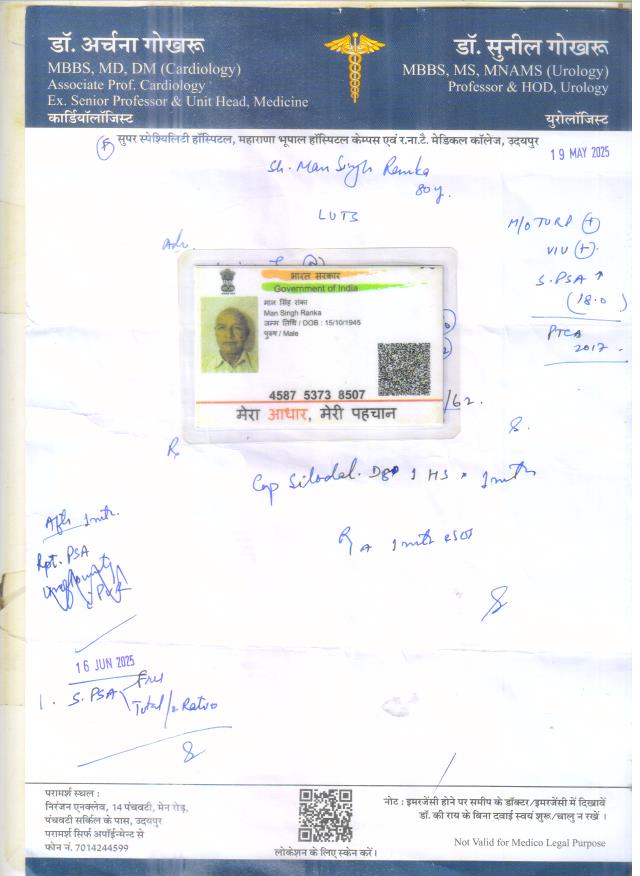 डॉ. अर्चना गोखरू
MBBS, MD, DM (Cardiology)
Associate Prof. Cardiology
Ex. Senior Professor & Unit Head, Medicine
कार्डियॉलॉजिस्ट
डॉ. सुनील गोखरू
MBBS, MS, MNAMS (Urology)
Professor & HOD, Urology
यूरोलॉजिस्ट
सुपर स्पेश्यिलिटी हॉस्पिटल, महाराणा भूपाल हॉस्पिटल केम्पस एवं र.ना.टै. मेडिकल कॉलेज, उदयपुर
19 MAY 2025
Sh. Man Singh Ranka
80y.
LUTS
Adv.
H/O TURP (+)
VIU (+)
S. PSA ↑
(18.0)
PTCA
2017
भारत सरकार
Government of India
मान सिंह रांका
Man Singh Ranka
जन्म तिथि / DOB : 15/10/1945
पुरुष / Male
4587 5373 8507
मेरा आधार, मेरी पहचान
/62.
Rx
Cap Silodal. 1 HS x 1mth
After 1mth.
Rpt. PSA
16 JUN 2025
1. S. PSA Free
Total / Ratio
परामर्श स्थल :
निरंजन एनक्लेव, 14 पंचवटी, मेन रोड़,
पंचवटी सर्किल के पास, उदयपुर
परामर्श सिर्फ अपॉईन्मेन्ट से
फोन नं. 7014244599
लोकेशन के लिए स्केन करें।
नोट : इमरजेंसी होने पर समीप के डॉक्टर/इमरजेंसी में दिखावें
डॉ. की राय के बिना दवाई स्वयं शुरू/चालु न रखें ।
Not Valid for Medico Legal Purpose